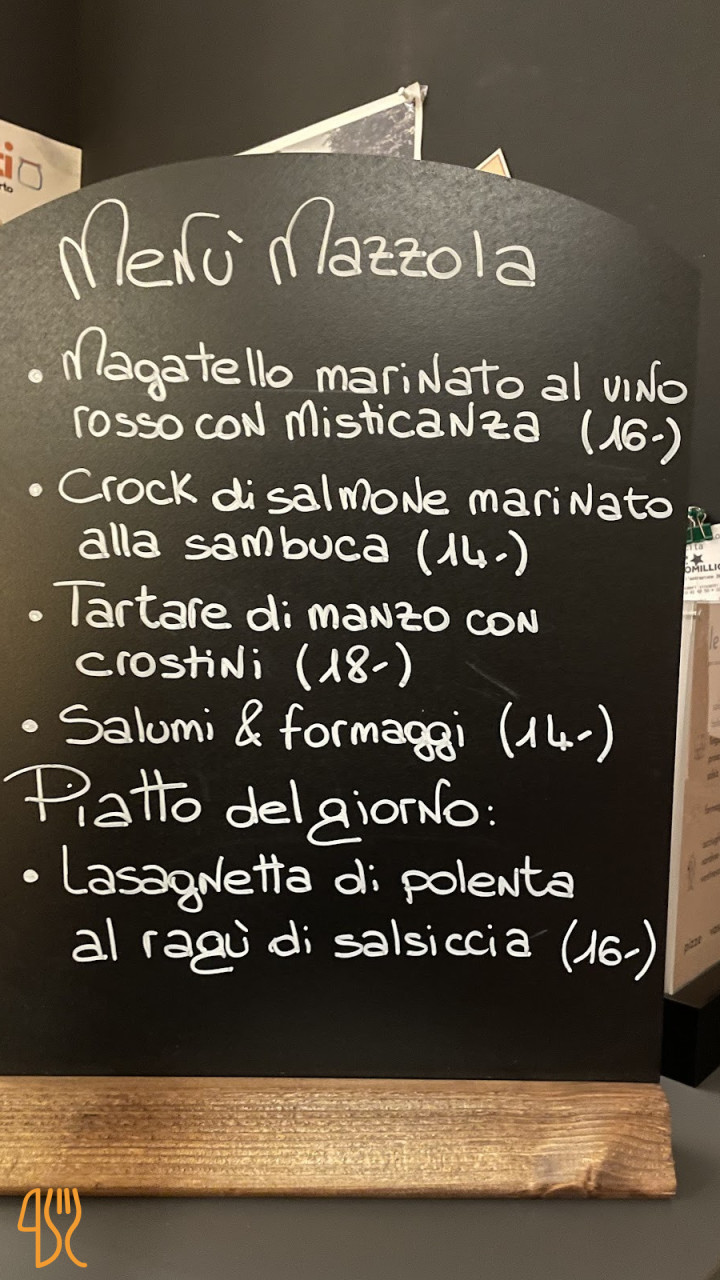 Menù Mazzola
• Magatello marinato al vino
rosso con misticanza (16-)
• Crock di salmone marinato
alla sambuca (14-)
• Tartare di manzo con
crostini (18-)
• Salumi & formaggi (14-)
Piatto del giorno:
• Lasagnetta di polenta
al ragù di salsiccia (16-)